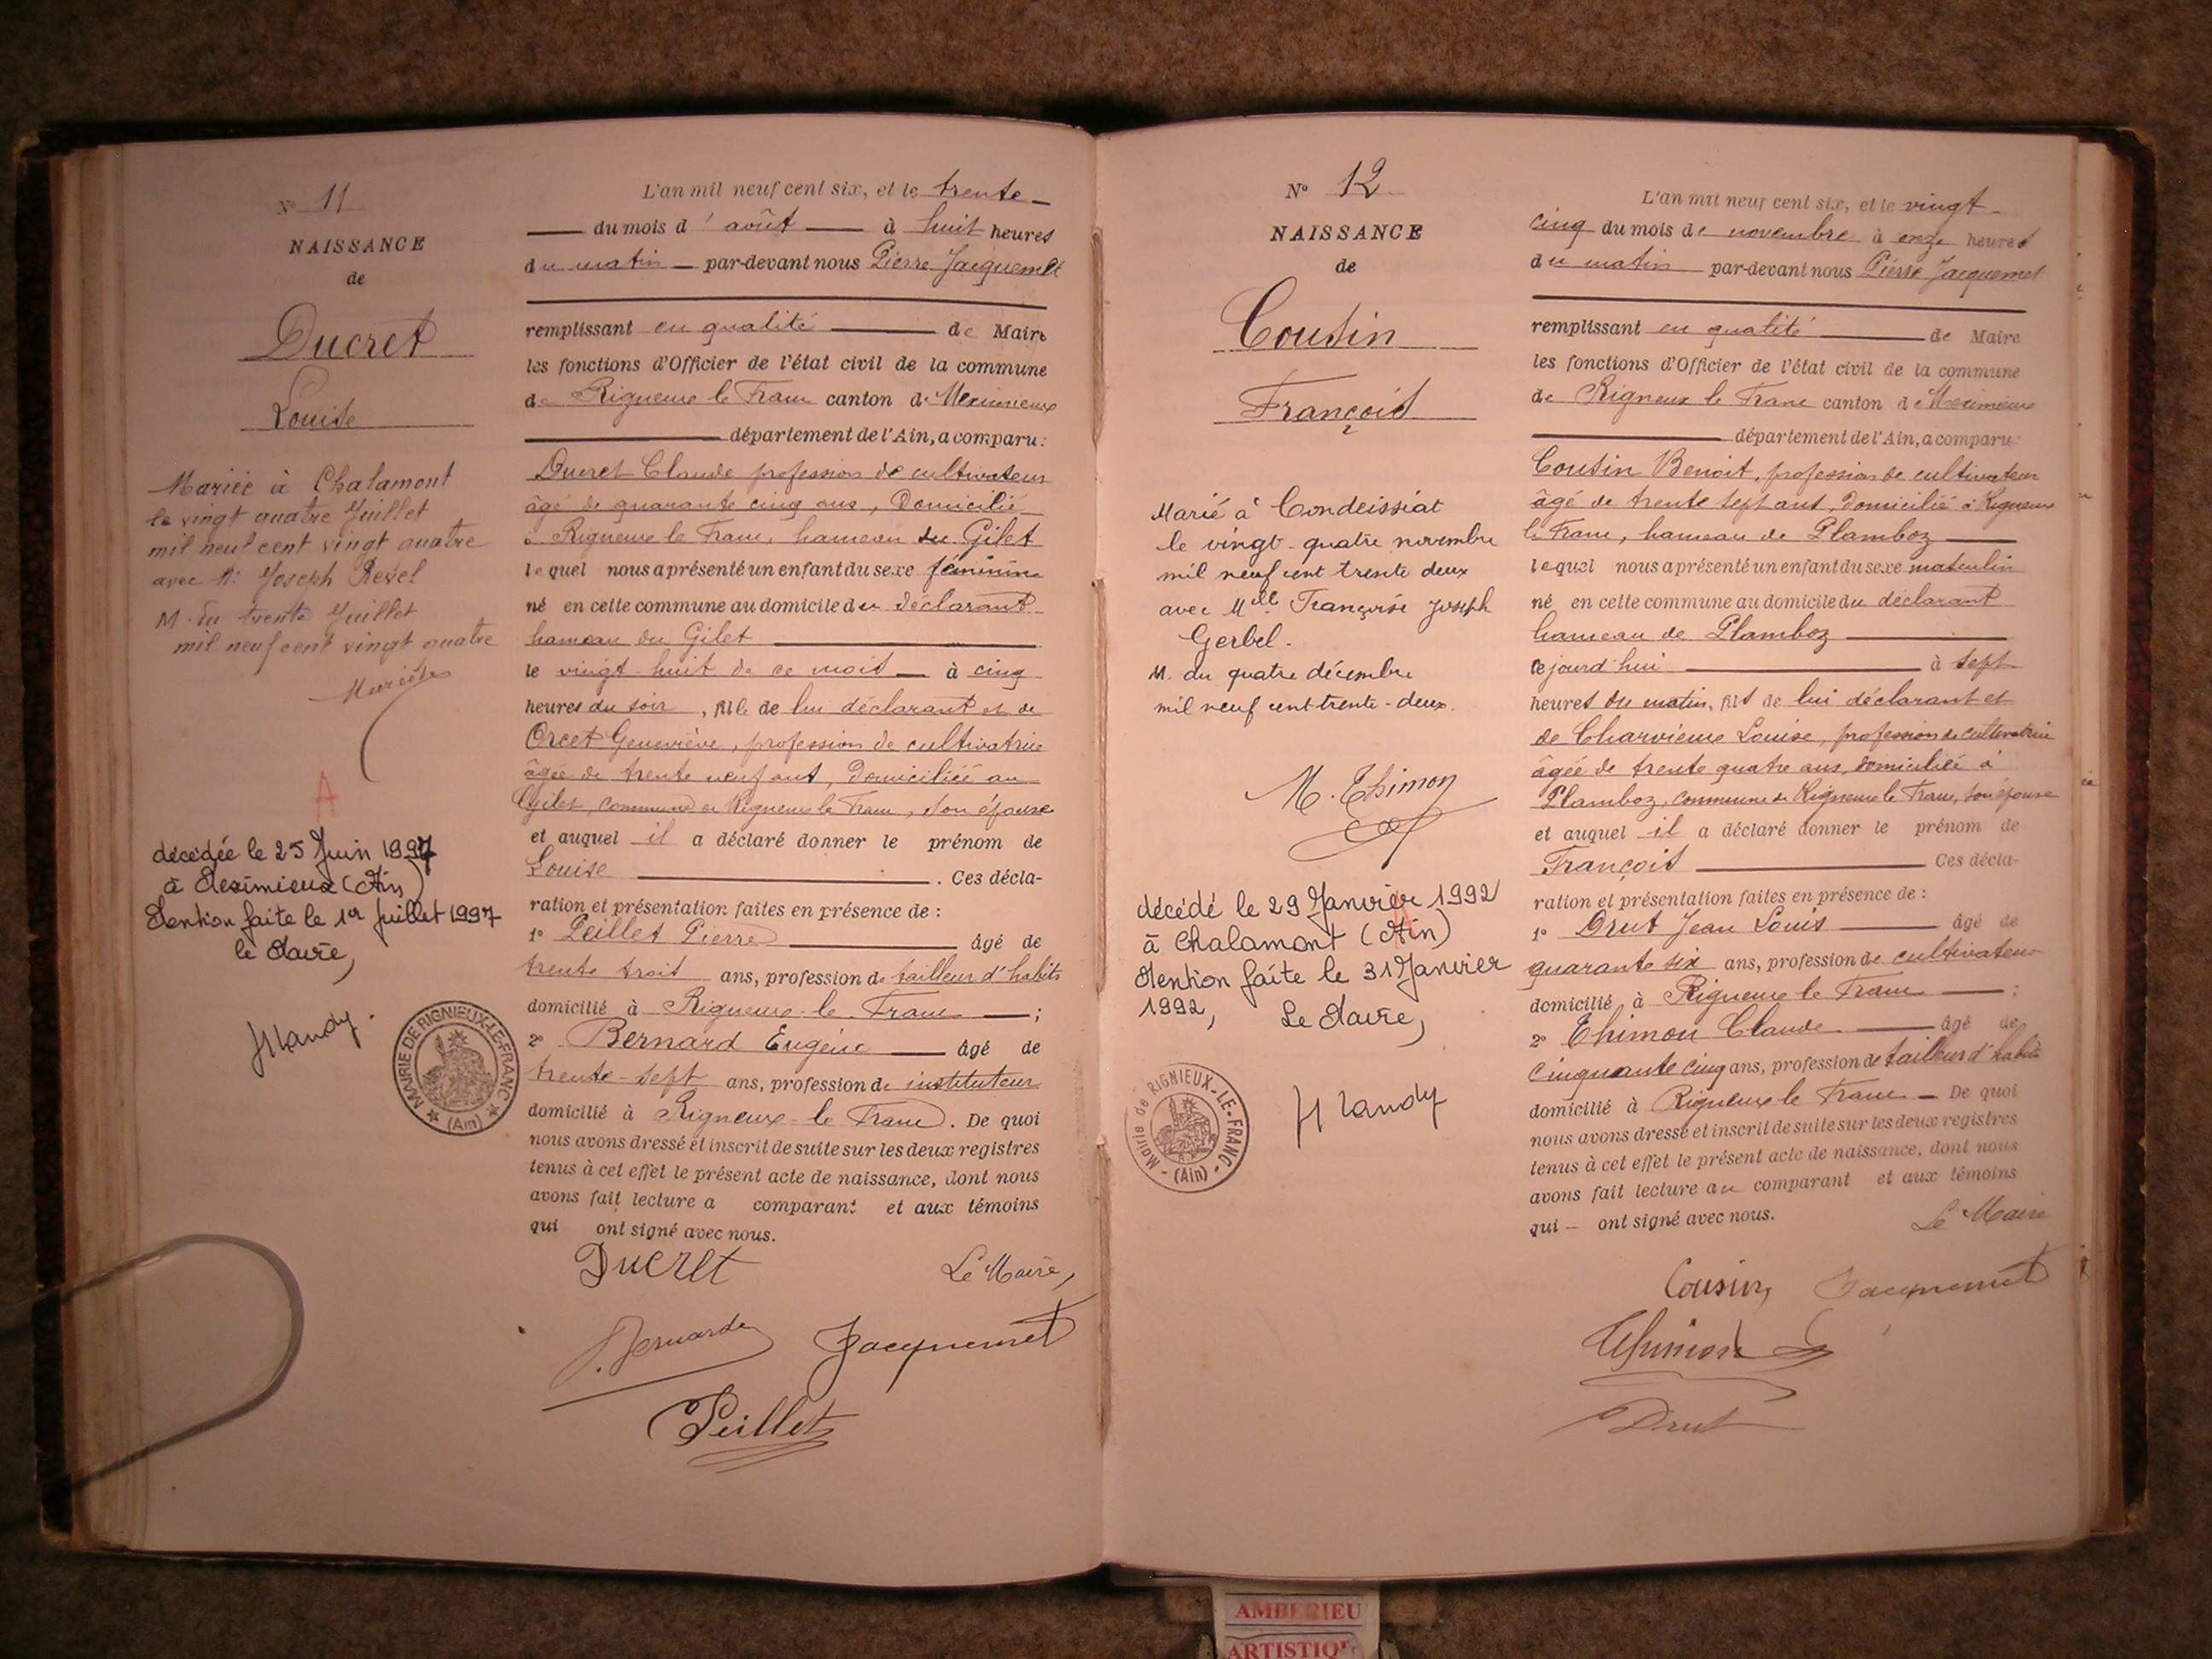 N° 11
NAISSANCE
de
Ducret
Louise
Mariée à Chalamont
le vingt quatre Juillet
mil neuf cent vingt quatre
avec M. Joseph Revel
M. du trente Juillet
mil neuf cent vingt quatre
A
décédée le 25 Juin 1997
à Meximieux (Ain)
Mention faite le 1er Juillet 1997
le Maire,
MAIRIE DE RIGNIEUX-LE-FRANC
(Ain)
L'an mil neuf cent six, et le trente
du mois d'août à huit heures
du matin par-devant nous Pierre Jacquemet
remplissant en qualité de Maire
les fonctions d'Officier de l'état civil de la commune
de Rigneux le Franc canton de Meximieux
département de l'Ain, a comparu:
Ducret Claude profession de cultivateur
âgé de quarante cinq ans, Domicilié
à Rigneux le Franc, hameau du Gilet
lequel nous a présenté un enfant du sexe féminin
né en cette commune au domicile du déclarant
hameau du Gilet
le vingt huit de ce mois à cinq
heures du soir, fille de lui déclarant et de
Orcet Geneviève, profession de cultivatrice
âgée de trente neuf ans, Domiciliée au
Gilet, commune de Rigneux le Franc, son épouse
et auquel il a déclaré donner le prénom de
Louise. Ces décla-
ration et présentation faites en présence de :
1° Peillet Pierre âgé de
trente trois ans, profession de tailleur d'habits
domicilié à Rigneux-le-Franc ;
2° Bernard Eugène âgé de
trente-sept ans, profession de instituteur
domicilié à Rigneux-le Franc. De quoi
nous avons dressé et inscrit de suite sur les deux registres
tenus à cet effet le présent acte de naissance, dont nous
avons fait lecture a comparant et aux témoins
qui ont signé avec nous.
Ducret Le Maire,
Bernard Jacquemet
Peillet
N° 12
NAISSANCE
de
Cousin
François
Marié à Condeissiat
le vingt-quatre novembre
mil neuf cent trente deux
avec Mlle Françoise Joseph
Gerbel.
M. du quatre décembre
mil neuf cent trente-deux.
M. Thimon
A
décédé le 29 Janvier 1992
à Chalamont (Ain)
Mention faite le 31 Janvier
1992, Le Maire,
Mairie de RIGNIEUX-LE-FRANC
(Ain)
L'an mil neuf cent six, et le vingt-
cinq du mois de novembre à onze heures
du matin par-devant nous Pierre Jacquemet
remplissant en qualité de Maire
les fonctions d'Officier de l'état civil de la commune
de Rigneux le Franc canton de Meximieux
département de l'Ain, a comparu:
Cousin Benoit, profession de cultivateur
âgé de trente sept ans, domicilié à Rigneux
le Franc, hameau de Plamboz
lequel nous a présenté un enfant du sexe masculin
né en cette commune au domicile du déclarant
hameau de Plamboz
cejourd'hui à sept
heures du matin, fils de lui déclarant et
de Charvieux Louise, profession de cultivatrice
âgée de trente quatre ans, domiciliée à
Plamboz, commune de Rigneux le Franc, son épouse
et auquel il a déclaré donner le prénom de
François Ces décla-
ration et présentation faites en présence de :
1° Drut Jean Louis âgé de
quarante six ans, profession de cultivateur
domicilié à Rigneux le Franc ;
2° Thimon Claude âgé de
cinquante cinq ans, profession de tailleur d'habits
domicilié à Rigneux le Franc De quoi
nous avons dressé et inscrit de suite sur les deux registres
tenus à cet effet le présent acte de naissance, dont nous
avons fait lecture au comparant et aux témoins
qui ont signé avec nous. Le Maire
Cousin Jacquemet
Thimon
Drut
AMBERIEU
ARTISTIQUE